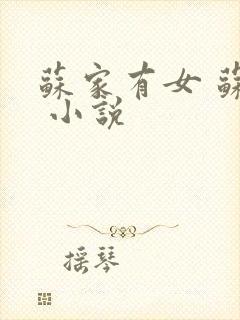 蘇家有女 蘇
小說
摇琴